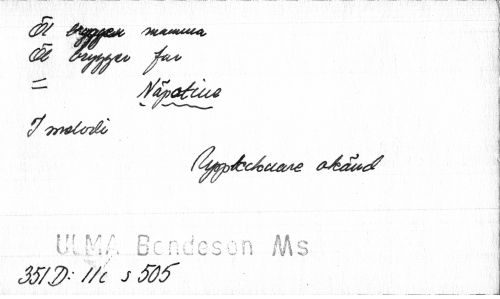 Öl brygger mamma
Öl brygger far
=
Näpstine
I melodi
Upptecknare okänd
ULMA Bondeson Ms
351 D: 11c s 505